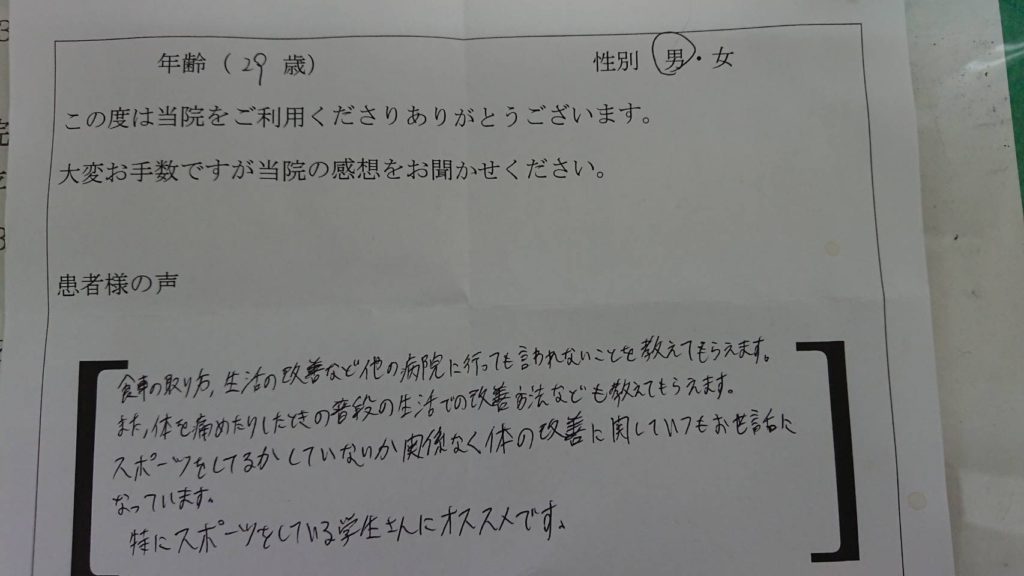 年齢（29 歳）　性別 男・女
この度は当院をご利用くださりありがとうございます。
大変お手数ですが当院の感想をお聞かせください。
患者様の声
食事の取り方,生活の改善など他の病院に行っても言われないことを教えてもらえます。
また,体を痛めたりしたときの普段の生活での改善方法なども教えてもらえます。
スポーツをしてるかしていないか関係なく体の改善に関していつもお世話に
なっています。
特にスポーツをしている学生さんにオススメです。